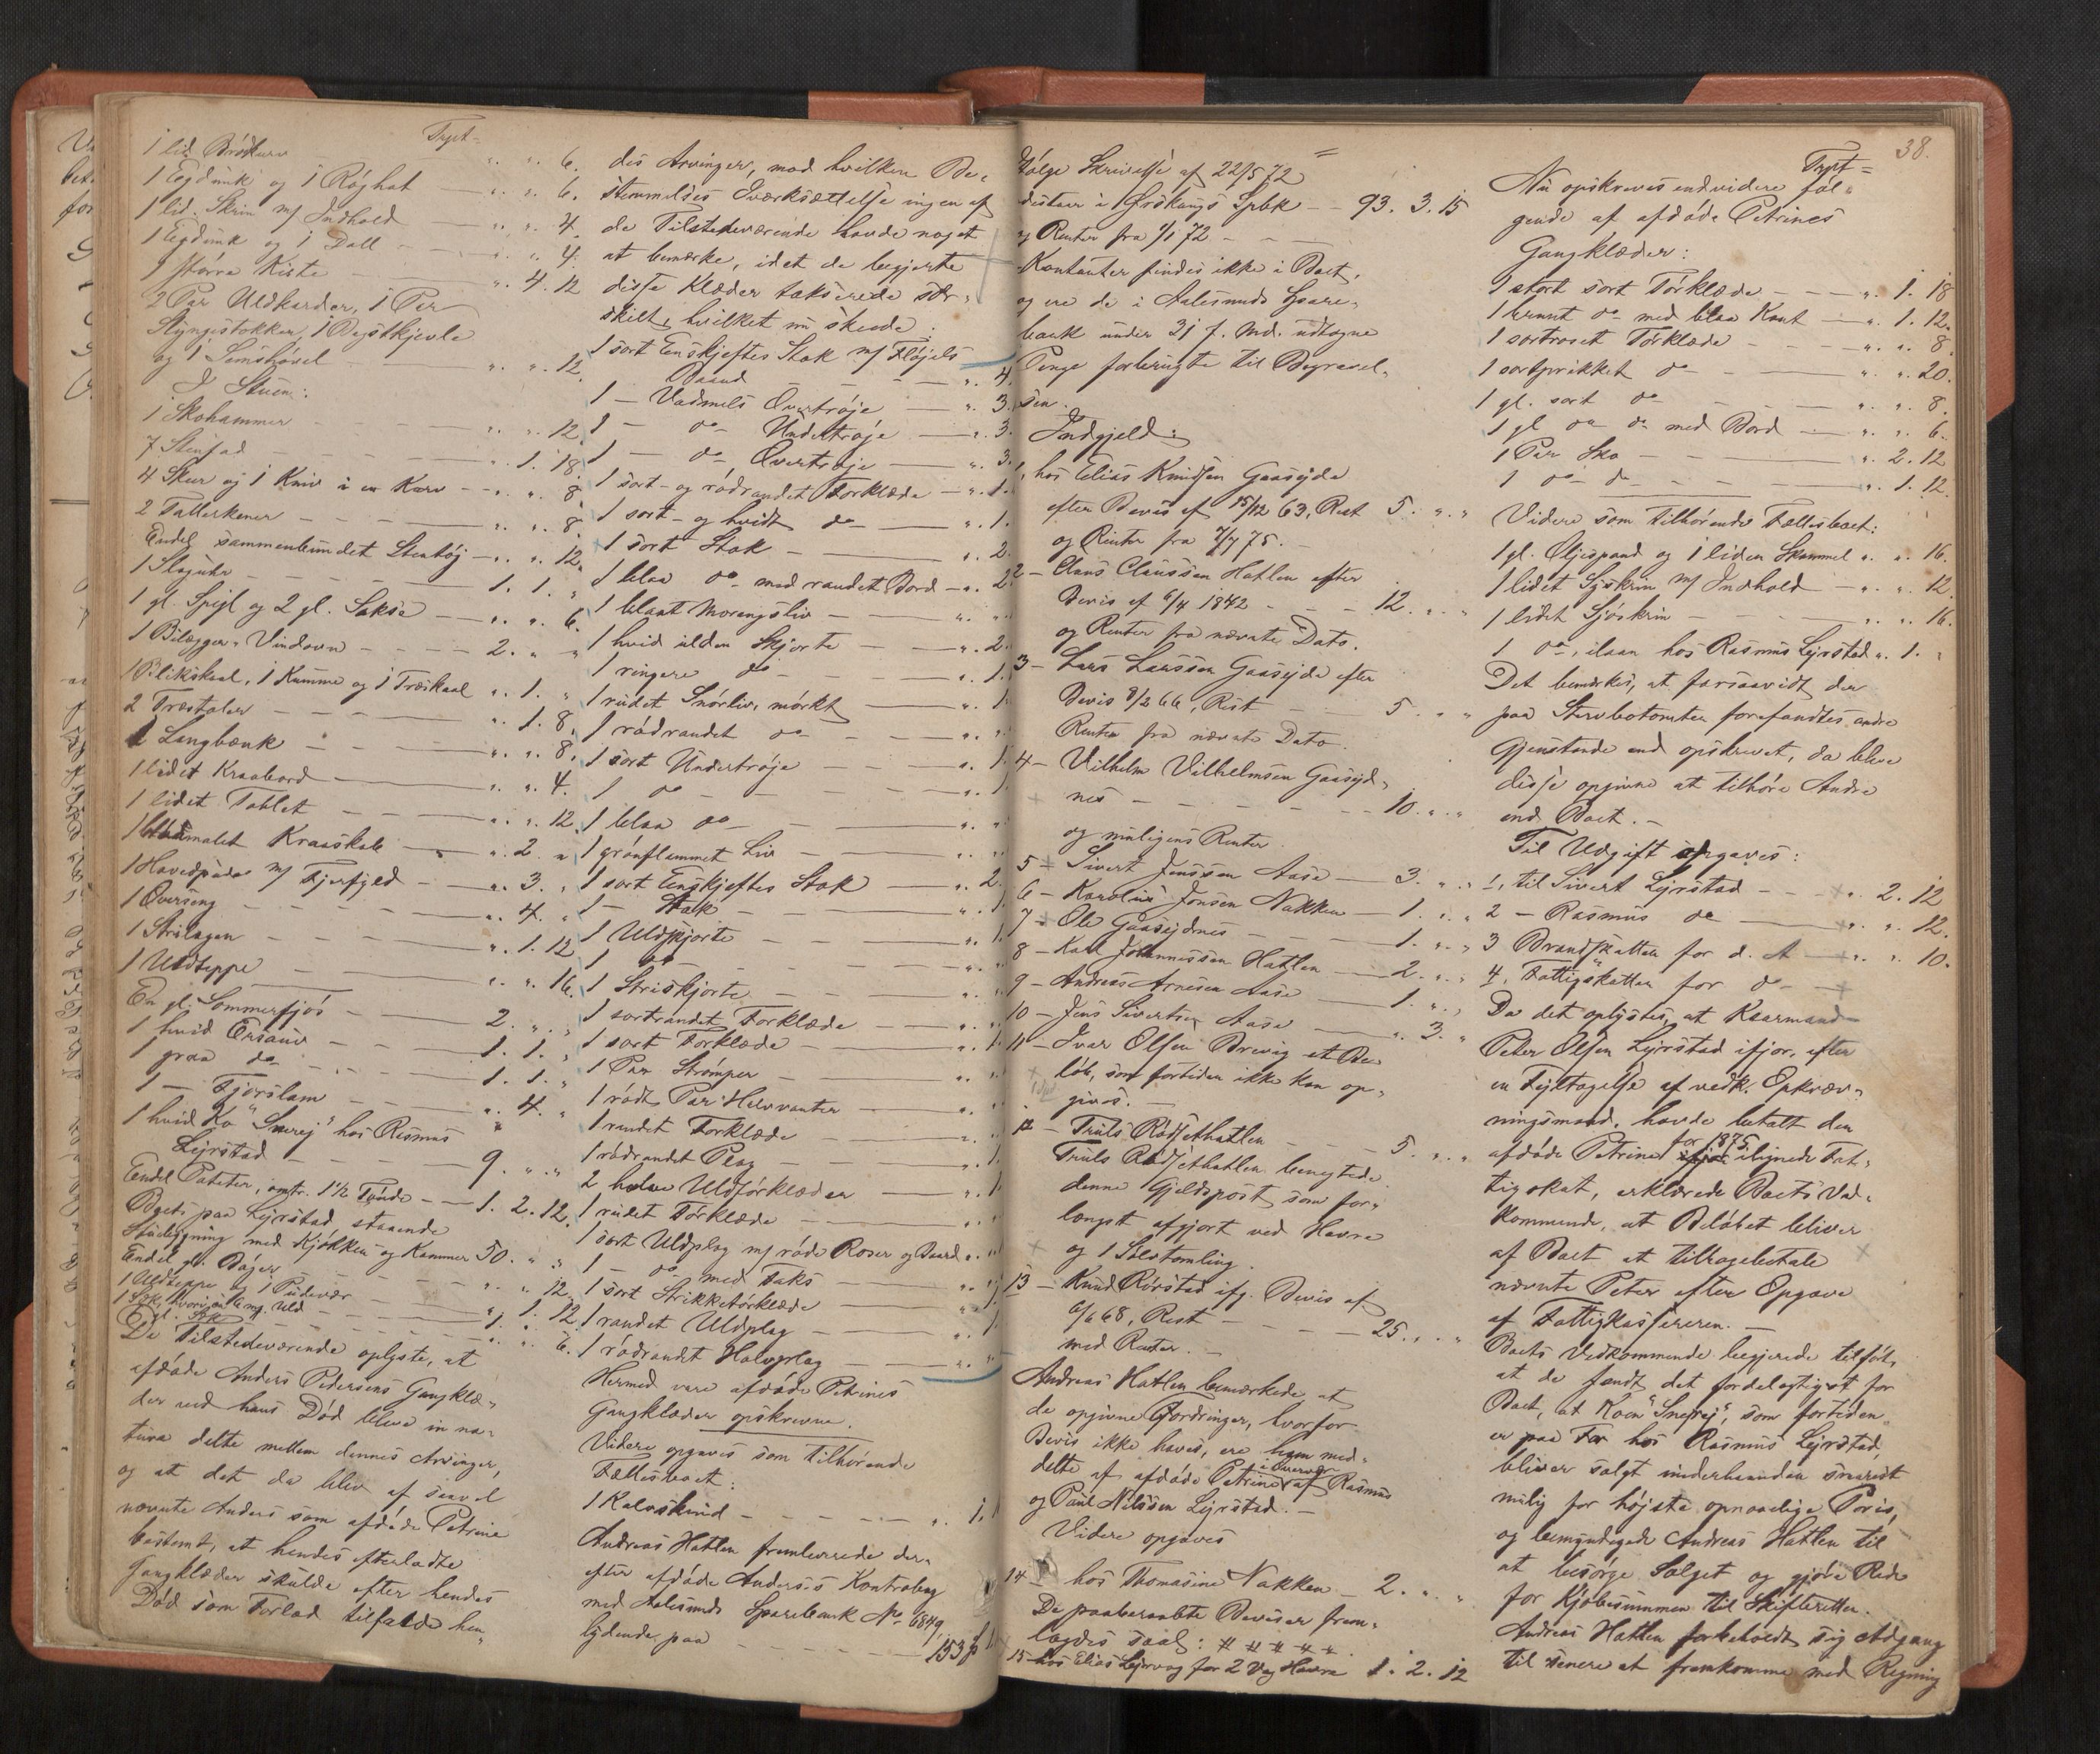 Trpt.
1 lid. Brödkurv " " 6.
1 Tegdunk og 1 Röghat " " 6.
1 lid. Skrin m/ Indhold " " 4.
1 Tegdunk og 1 Dall " " 4.
1 större Kiste " 4. 12
2 Par Uldkarder, 1 Par
og 1 " " 12.
I Stuen:
1 Skohammer " " 12
7 Stenfad " 1. 18
4 Skeer og 1 Kniv i en Kurv " " 8
2 Tallerkener " " 8
Endel sammenbundet Stentöj " " 12.
1 Slaguhr 1. 1. "
1 gl. Spejl og 2 gl. Sakse " " 6.
1 Bilægger-Vindovn 2. " "
1 Blikskaal, 1 Kumme og 1 Træskaal " 1. "
2 Træstoler " 1. 8.
1 Langbænk " " 8.
1 lidet Kraabord " " 4.
1 lidet Tablet " " 12
malet Kraaskab " 2 "
1 Hovedpude m/ Fjerfyld " 3. "
1 Overseng " 4. "
1 Strilagen " 1. 12
1 Uldteppe " " 16.
En gl. Sommerfjös 2. " "
1 hvid Ersau 1. 1. "
1 graa do 1. 1. "
1 — Fjorslam " 4. "
1 hvid Ko "Snerej" hos Rasmus
Lejrstad 9. " "
Endel Poteter, omtr. 1 1/2 Tönde 1. 2. 12.
Boets paa Lejrstad staaende
Stuebygning med Kjökken og Kammer 50. " "
Endel gl. Böger " " 12
1 Uldteppe og 1 Pudevær " 1. 12
1 Sæk, hvori omtr. 6 mg. Uld 1. " 12
gl. Sæk " " 6.
De Tilstedeværende oplyste, at
afdöde Anders Pedersens Gangklæ-
der ved hans Död bleve in na-
tura delte mellem dennes Arvinger,
og at det da blev af saavel
nævnte Anders som afdöde Petrine
bestemt, at hendes efterladte
Gangklæder skulde efter hendes
Död som Forlod tilfalde hen-
des Arvinger, mod hvilken Be-
stemmelses Iværksættelse ingen af
de Tilstedeværende havde noget
at bemærke, idet de begjerte
disse Klæder takserede sær-
skilt, hvilket nu skede:
1 sort Enskjeftes Stak m/ Flöjels
Baand " 4.
1 — Vadmels Overtröje " 3.
1 — do Undertröje " 3.
1 — do Overtröje " 3.
1 sort- og rödrandet Forklæde " 1.
1 sort- og hvidt do " 1.
1 sort Stak " 2.
1 blaa do med randet Bord " 2.
1 blaat Morengsliv " "
1 hvid ulden Skjorte " 2.
1 ringere do " 1.
1 rudet Snörliv, mörkt " 1.
1 rödrandet do " "
1 sort Undertröje " 1.
1 do " 1.
1 blaa do " "
1 grönflammet Liv " "
1 sort Enskjeftes Stak " 2.
1 — Stak " 1.
1 Uldskjorte " 1.
1 do " "
1 Striskjorte " "
1 sortrandet Forklæde " "
1 sort Forklæde " 1.
1 Par Strömper " "
1 rödt Par Halvvanter " "
1 randet Forklæde " "
1 rödrandet Plag " 1.
2 halve Uldtörklæder " 1.
1 rudet Törklæde " "
1 sort Uldplag m/ röde Roser og Baard " "
1 — do med Taks " "
1 sort Strikketörklæde " 1.
1 randet Uldplag " 1.
1 rödrandet Halvplag " "
Hermed vare afdöde Petrines
Gangklæder opskrevne.
Videre opgaves som tilhörende
Fællesboet:
1 Kalvskind " 1.
Andreas Hatlen fremleverede der-
efter afdöde Anders's Kontrabog
med Aalesunds Sparebank No 6849,
lydende paa 153
38.
fölge Skrivelse af 22/5 72
destaar i Örskougs Spbk 93. 3. 15
og Renter fra 1/1 72
Kontanter findes ikke i Boet,
og ere de i Aalesunds Spare-
bank under 31 f. Md. udtagne
Penge forbrugte til Begravel-
sen.
Indgjeld:
1, hos Elias Knudsen Gaasejde
efter Bevis af 15/12 63, Rest 5. " "
og Renter fra 7/7 75.
2 — Claus Claussen Hatlen efter
Bevis af 6/4 1842 12. " "
og Renter fra nævnte Dato.
3 — Lars Larssen Gaasejde efter
Bevis 8/2 66, Rest 5. " "
Renter fra nævnte Dato.
4 — Vilhelm Vilhelmsen Gaasejd-
nes 10. " "
og muligens Renter.
5 — Sivert Jenssen Aase 3. " "
6 — Karoline Jonsen Nakken 1. " "
7 — Ole Gaasejdnes 1. " "
8 — Karl Johannessen Hatlen 2. " "
9 — Andreas Arnesen Aase 1. " "
10 — Jens Sivertsen Aase " 3. "
11 — Ivar Olsen Brevig et Be-
löb, som fortiden ikke kan op-
gives.
12 — Truls Rödsethatlen 5. " "
Truls Rödsethatlen benegtede
denne Gjeldspost som for-
længst afgjort ved Havre
og 1 Sælstomling.
13 — Knud Rörstad ifg. Bevis af
6/6 68, Rest 25. " "
med Renter.
Andreas Hatlen bemærkede at
de opgivne Fordringer, hvorfor
Bevis ikke haves, ere ham med-
delte af afdöde Petrine af Rasmus
og Paul Nilssen Lejrstad.
Videre opgaves
14 — hos Thomasine Nakken 2. " "
De paaberaabte Beviser frem-
lagdes saal: # # # # #.
15 — hos Elias Lejrvaag for 2 Vog Havre 1. 2. 12
Trpt =
Nu opskreves endvidere föl-
gende af afdöde Petrines
Gangklæder:
1 stort sort Törklæde " 1. 18
1 brunt do med blaa Kant " 1. 12.
1 sortroset Törklæde " " 8.
1 sortprikket do " " 20.
1 gl. sort do " " 8.
1 gl do do med Bord " " 6.
1 Par Sko " 2. 12
1 do do " 1. 12.
Videre som tilhörende Fællesboet:
1 gl. Oljespand og 1 liden Skammel " " 16.
1 lidet Syskrin m/ Indhold " " 12.
1 lidet Sjöskrin " " 16.
1 do, ilaan hos Rasmus Lejrstad " 1. "
Det bemerkes, at forsaavidt der
paa Stervbotomten forefandtes andre
Gjenstande end opskrevet, da bleve
disse opgivne at tilhöre Andre
end Boet. —
Til Udgift opgaves:
1, til Sivert Lejrstad " 2. 12
2 — Rasmus do " " 12.
3 Brandskatten for d. A. " " 10.
4. Fattigskatten for do
Da det oplystes, at Kaarmand
Peter Olsen Lejrstad ifjor, efter
en Fejltagelse af vedk. Opkræv-
ningsmand, havde betalt den
for 1875
afdöde Petrine ilignede Fat-
tigskat, erklærede Boets Ved-
kommende, at Belöbet bliver
af Boet at tilbagebetale
nævnte Peter efter Opgave
af Fattigkassereren. —
Boets Vedkommende begjerede tilföt,
at de fandt det fordelagtigst for
Boet, at Koen "Snerej", som fortiden
er paa For hos Rasmus Lejrstad,
bliver solgt underhaanden snarest
mulig for höjste opnaaelige Pris,
og bemyndigede Andreas Hatlen til
at besörge Salget og gjöre Rede
for Kjöbesummen til Skifteretten.
Andreas Hatlen forbeholdt sig Adgang
til senere at fremkomme med Regning